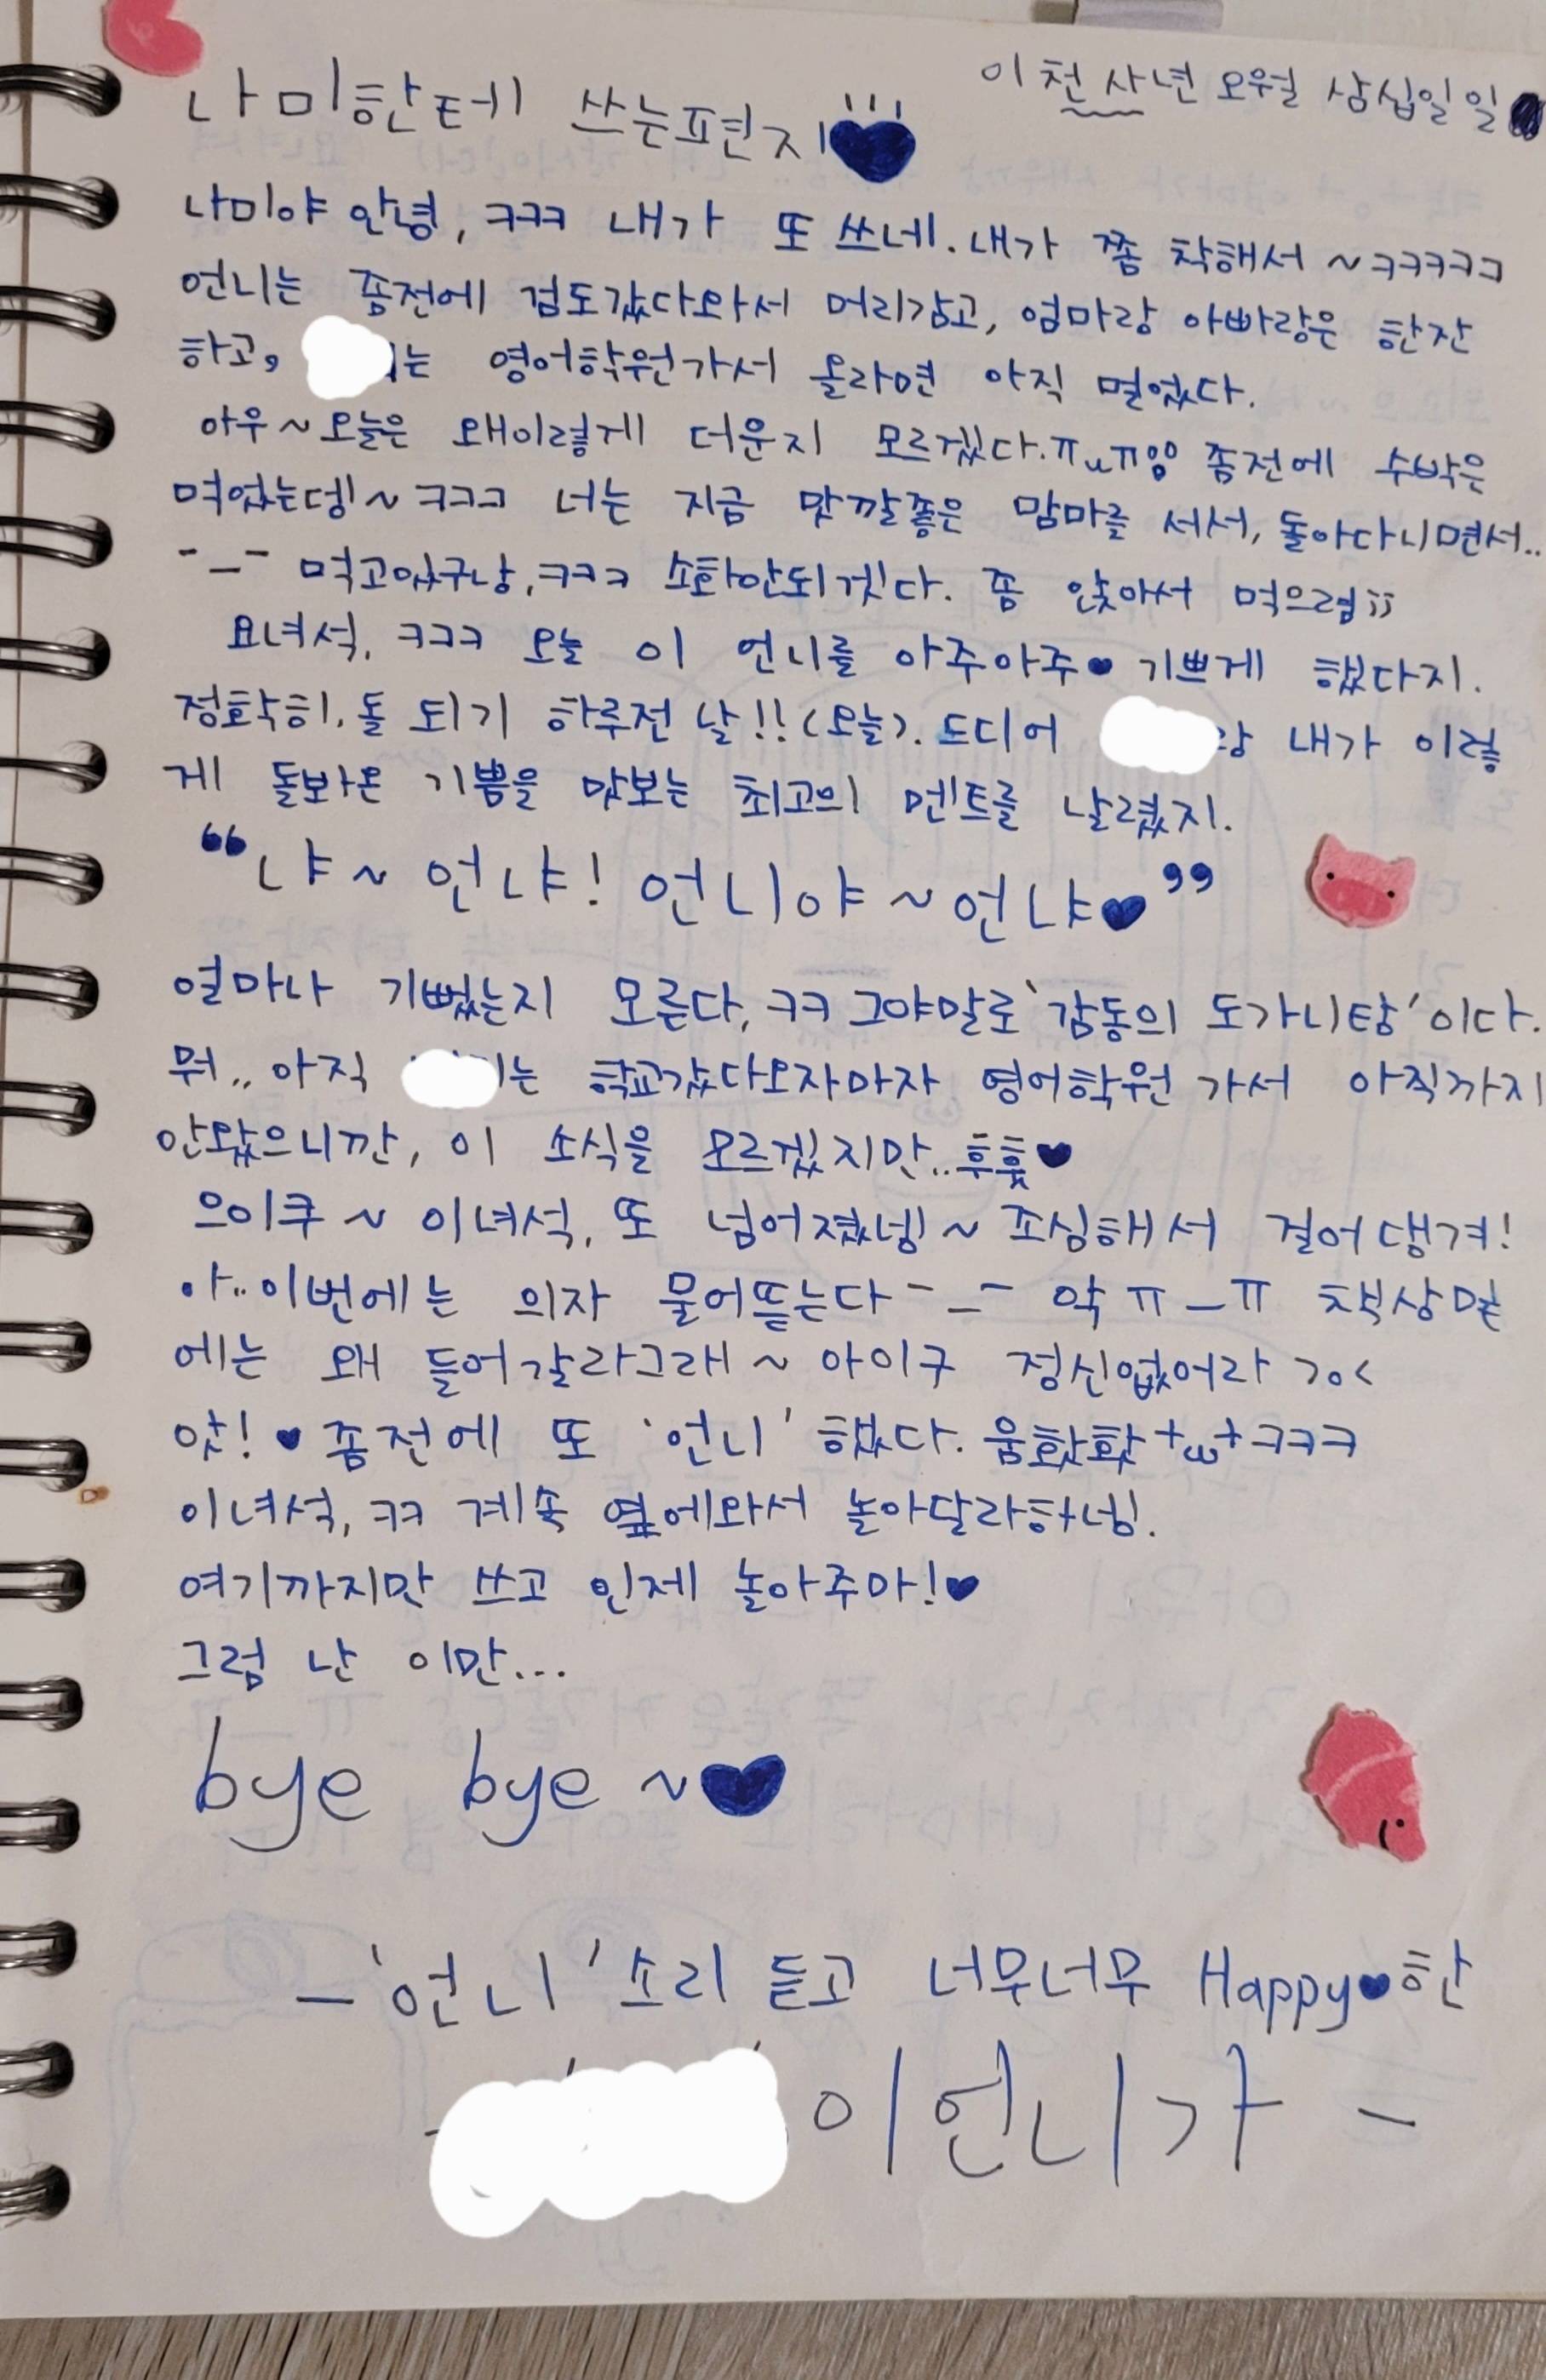 이천사년 오월 삼십일일
나미한테 쓰는편지♥
나미야 안녕, ㅋㅋㅋ 내가 또 쓰네. 내가 쫌 착해서 ~ㅋㅋㅋㅋㅋ
언니는 좀전에 검도갔다와서 머리감고, 엄마랑 아빠랑은 한잔
하고, 는 영어학원가서 올라면 아직 멀었다.
아우~오늘은 왜이렇게 더운지 모르겠다.ㅠㅠ 좀전에 수박은
먹었는뎅~ㅋㅋㅋ 너는 지금 맛깔좋은 맘마를 서서, 돌아다니면서..
-_- 먹고있구낭,ㅋㅋㅋ 소화안되겟다. 좀 앉아서 먹으렴;;
요녀석, ㅋㅋㅋ 오늘 이 언니를 아주아주♥ 기쁘게 했다지.
정확히. 돌 되기 하루전 날!!(오늘). 드디어 랑 내가 이렇
게 돌봐온 기쁨을 맛보는 최고의 멘트를 날렸지.
"냐~ 언냐! 언니야~언냐♥"
얼마나 기뻤는지 모른다, ㅋㅋ 그야말로 '감동의 도가니탕'이다.
뭐.. 아직 는 학교갔다오자마자 영어학원 가서 아직까지
안왔으니깐, 이 소식을 모르겠지만..후훗♥
으이쿠~ 이녀석, 또 넘어졌넹~ 조심해서 걸어댕겨!
아..이번에는 의자 물어뜯는다 -_- 악 ㅠ_ㅠ 책상밑
에는 왜 들어갈라그래~ 아이구 정신없어라 >o<
앗!♥ 좀전에 또 '언니' 했다. 움핫핫+ω+ㅋㅋㅋ
이녀석, ㅋㅋ 계속 옆에와서 놀아달라하넹.
여기까지만 쓰고 인제 놀아주마!♥
그럼 난 이만...
bye bye ~♥
- '언니' 소리 듣고 너무너무 Happy♥한
이언니가 -